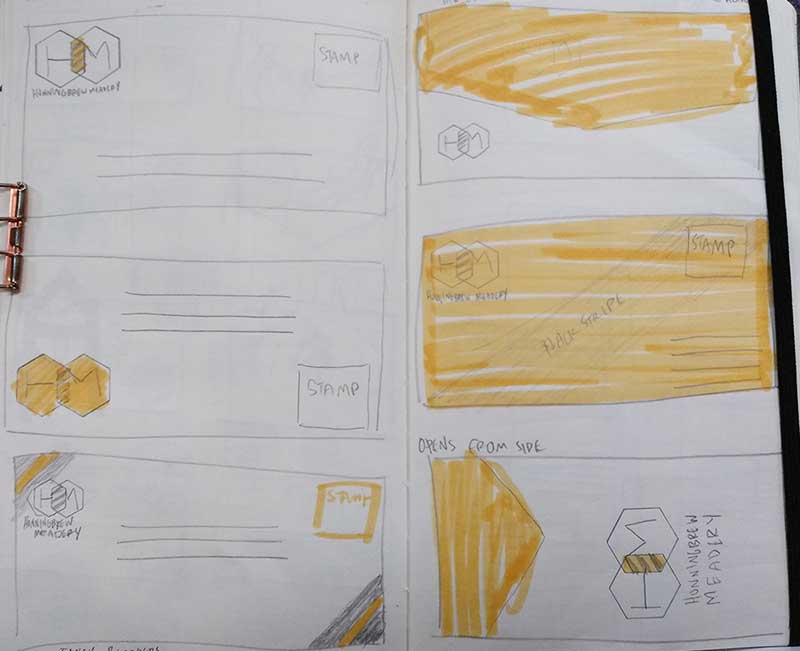 HM
STAMP
HONNINGBREW MEADERY
STAMP
HM
HM
STAMP
HONNINGBREW
MEADERY
HM
HM
STAMP
HONNINGBREW MEADERY
BLACK STRIPE
OPENS FROM SIDE
HM
HONNINGBREW
MEADERY